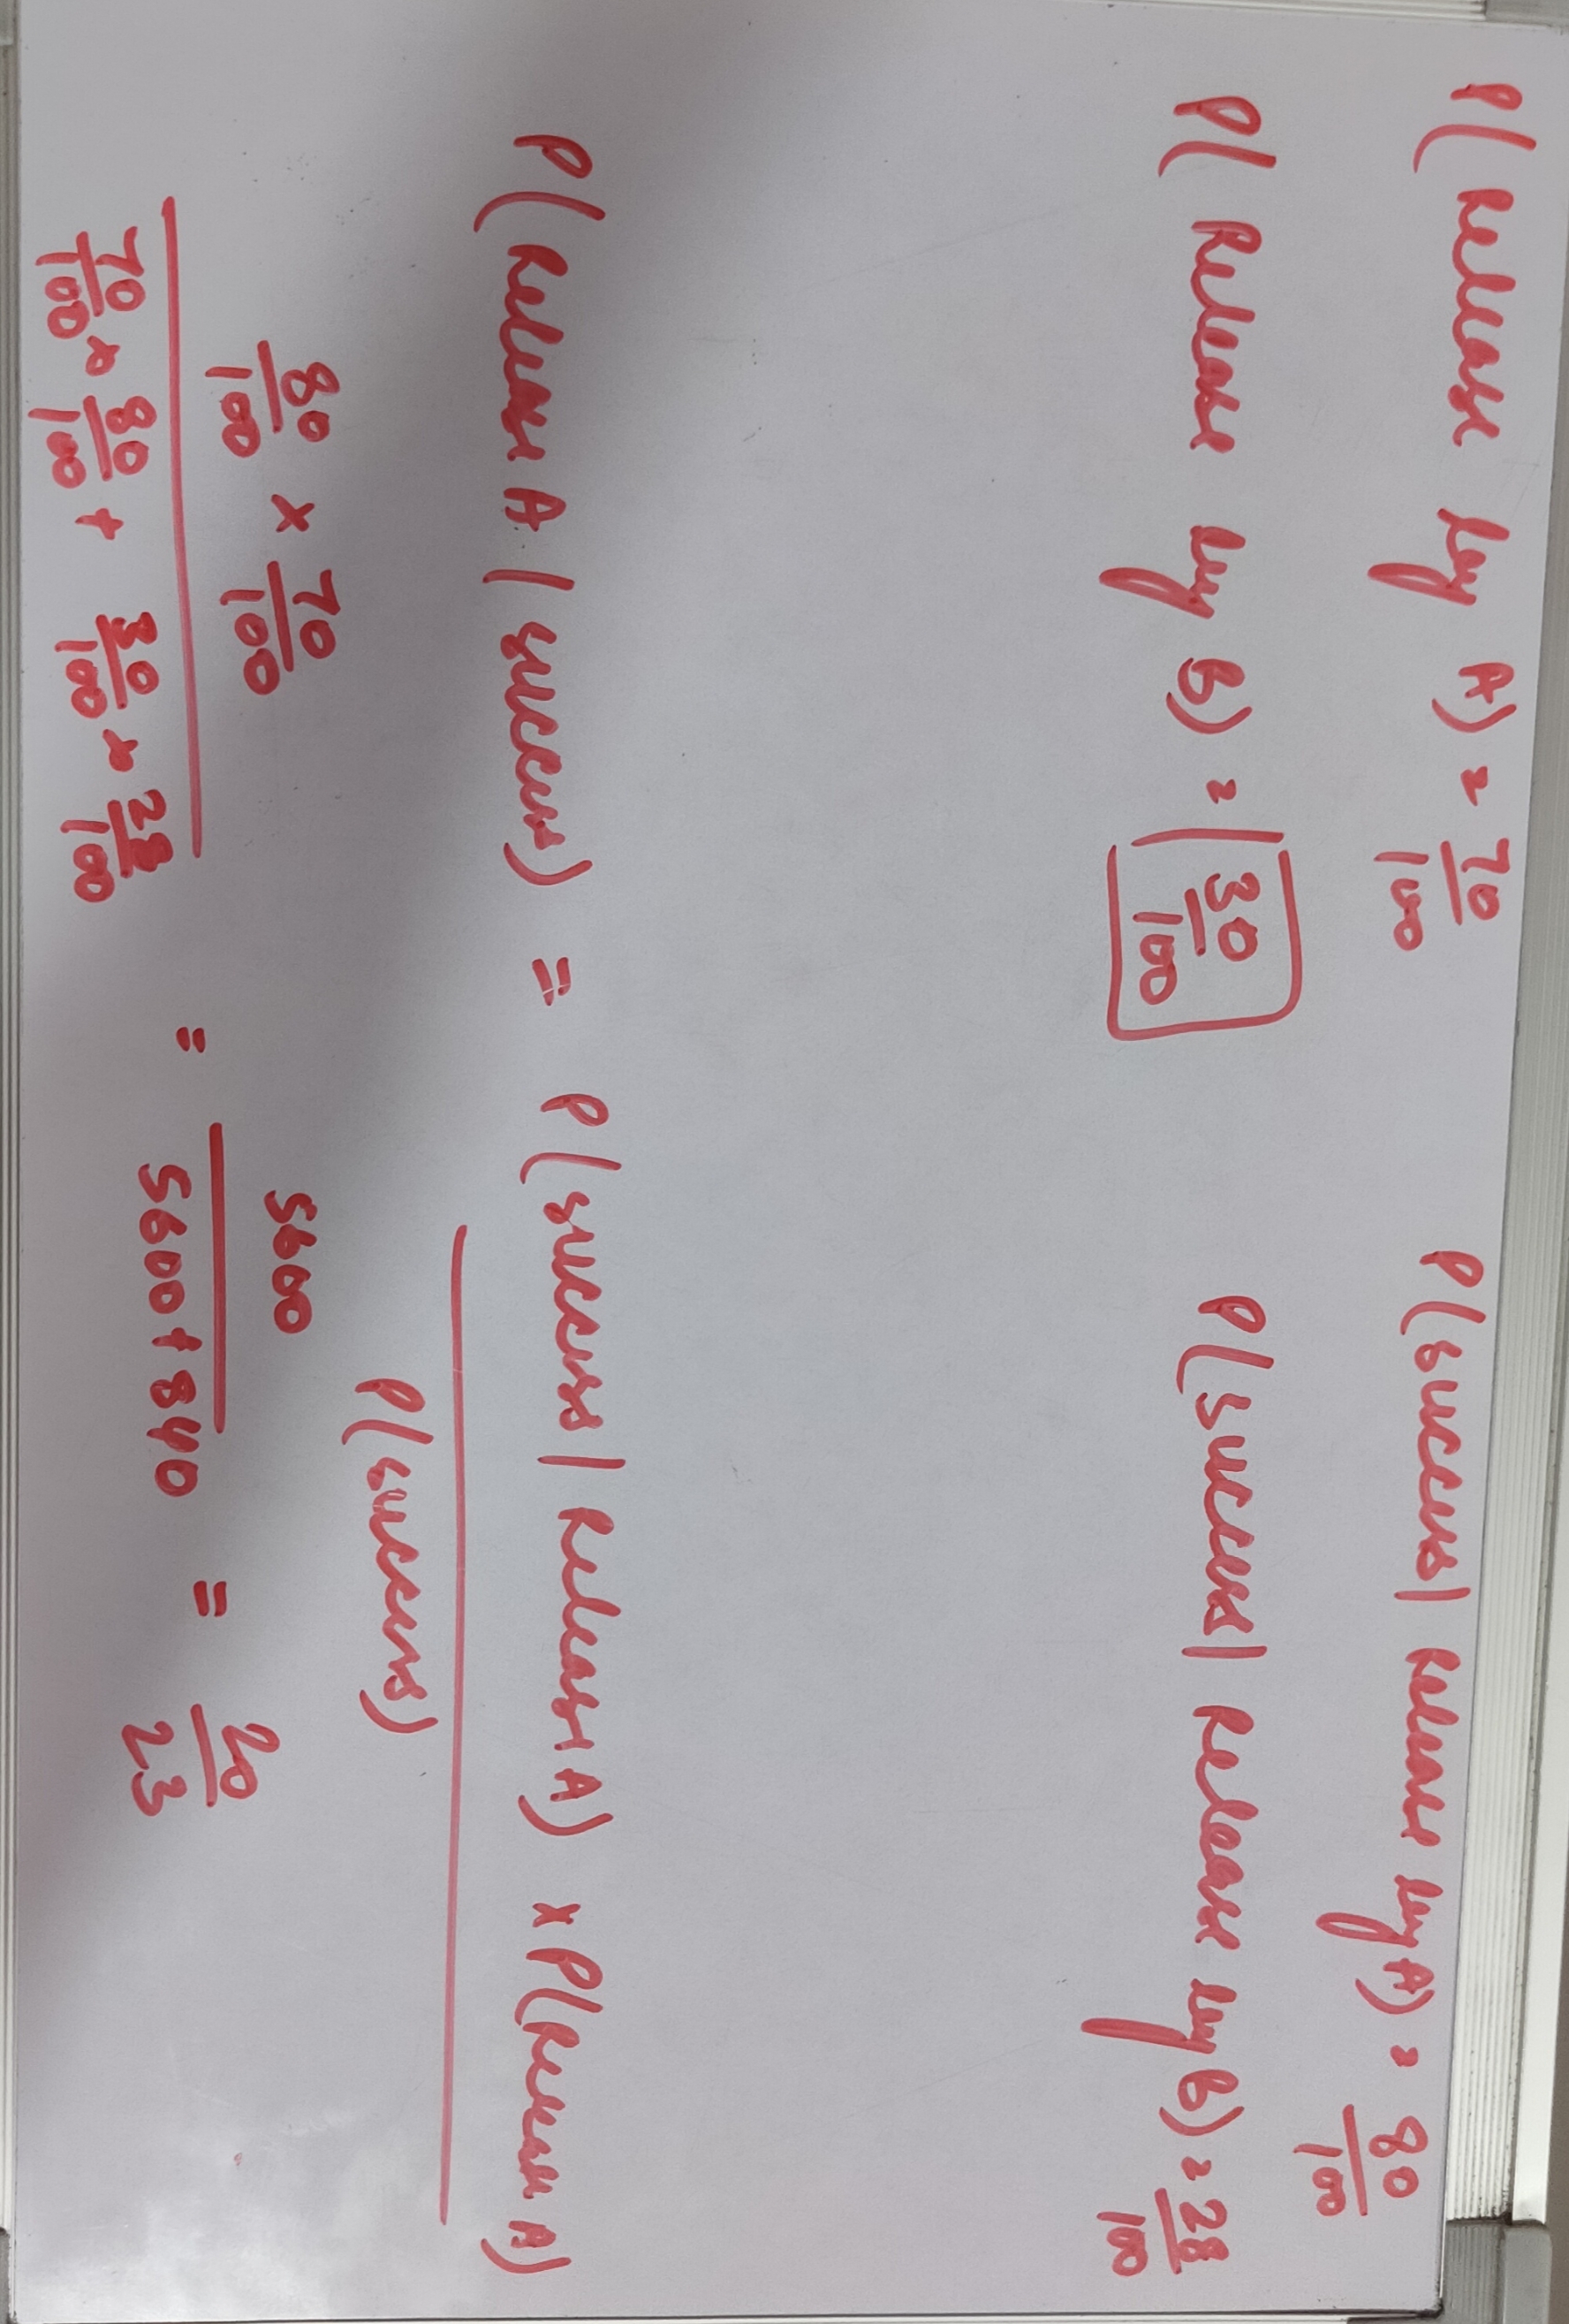 P( Release by A) = 70/100 P(success| Release by A) = 80/100
P( Release by B) = 30/100 P(success| Release by B) = 28/100
P(Release A | success) = P(success| Release A) x P(Release A)
P(success)
80/100 x 70/100 5600 20
70/100 x 80/100 + 30/100 x 28/100 = 5600+840 = 23